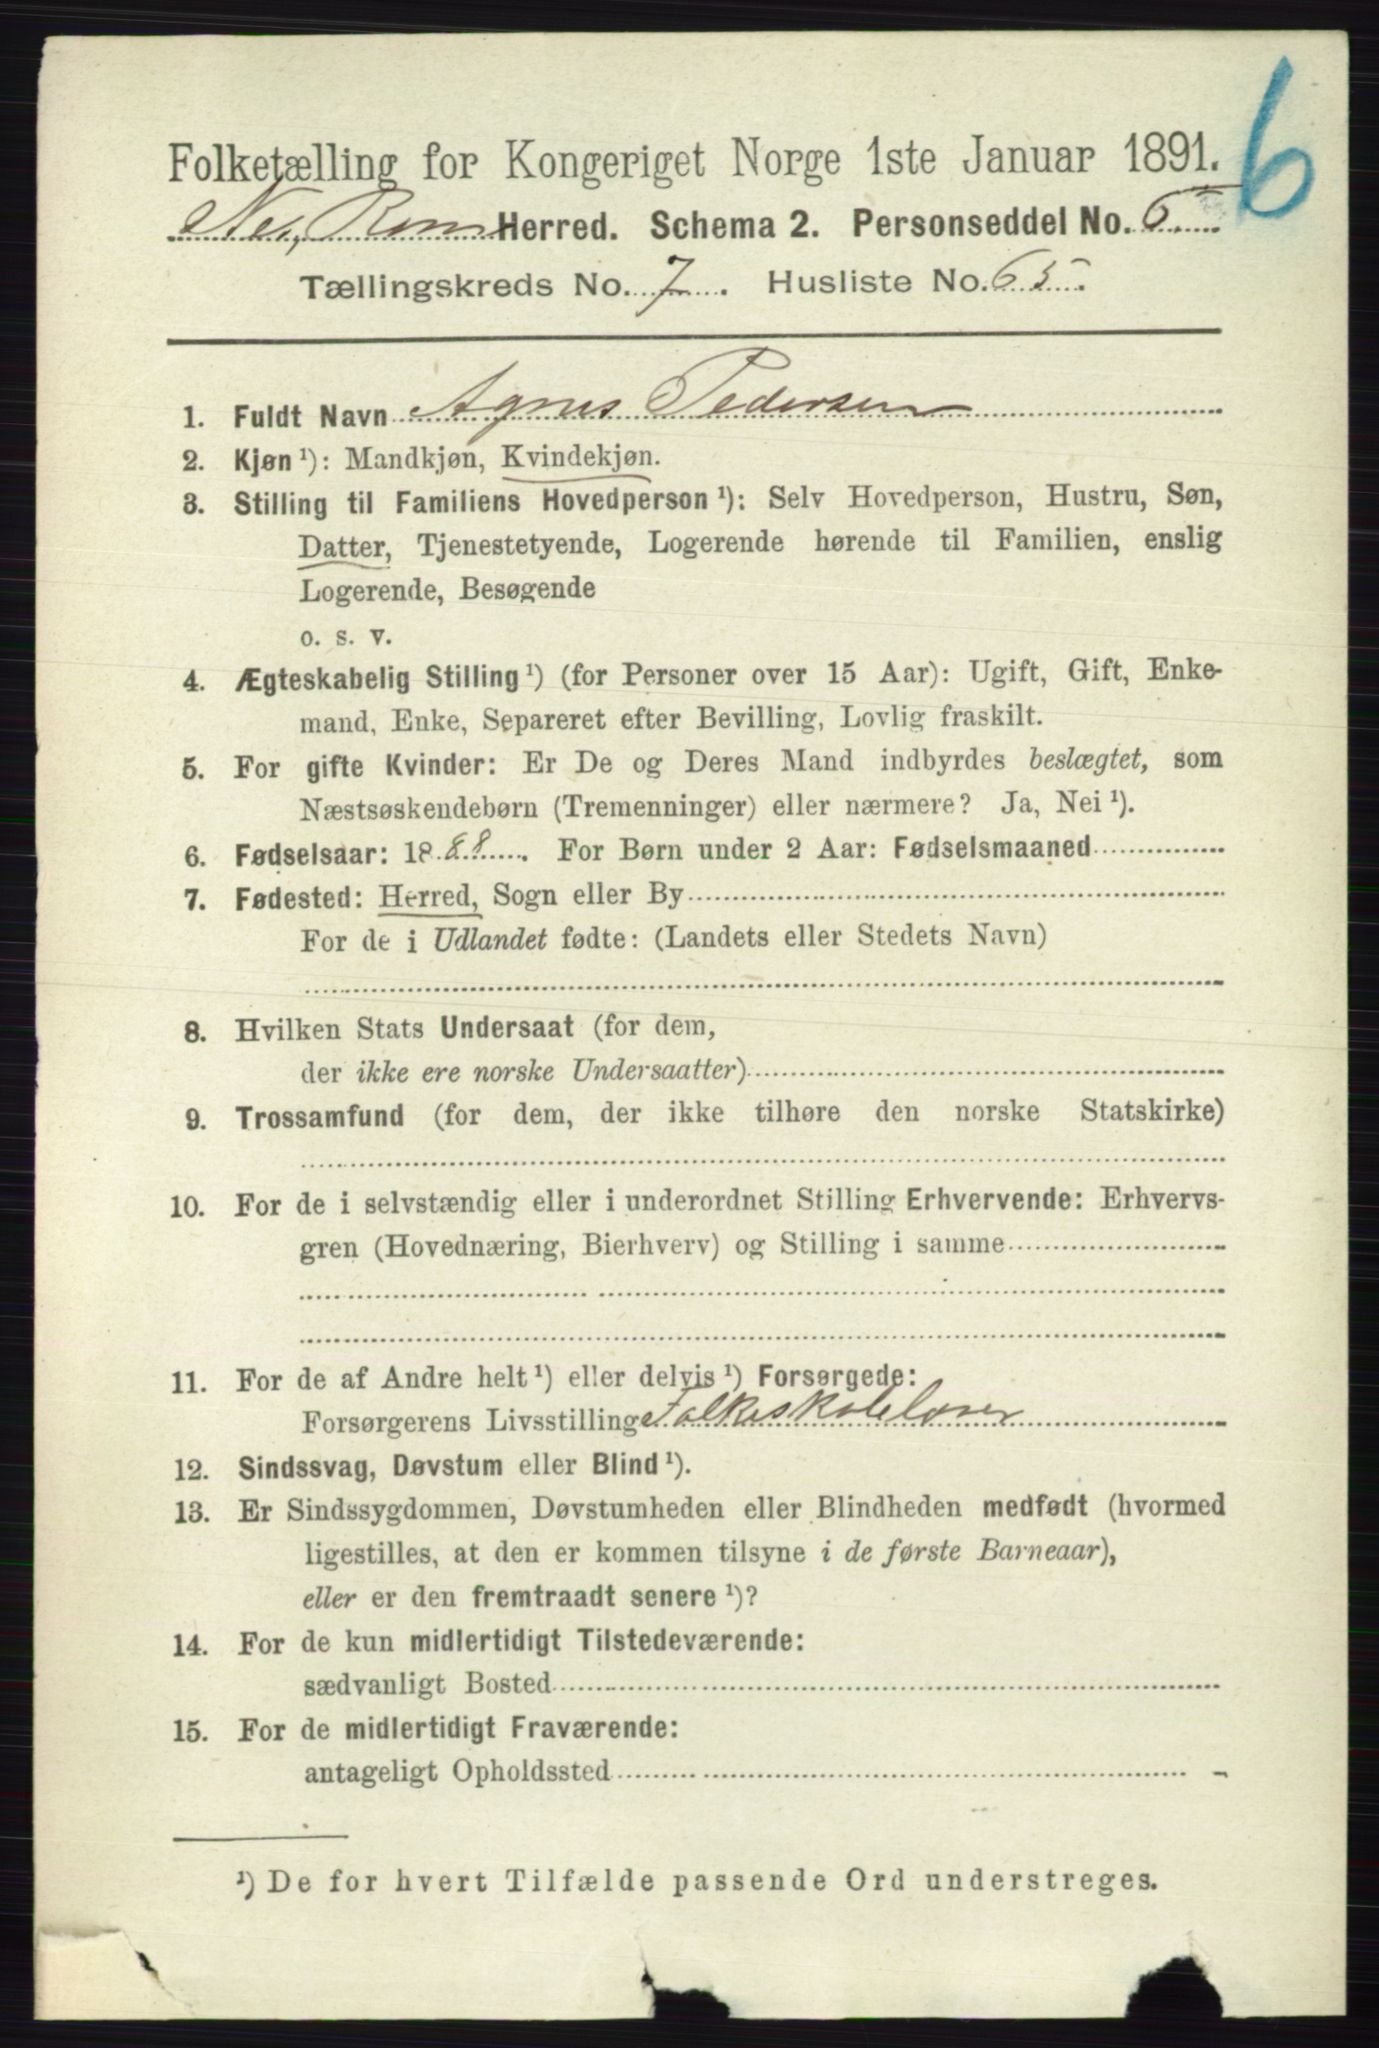 6
Folketælling for Kongeriget Norge 1ste Januar 1891.
Nes, Rom Herred. Schema 2. Personseddel No. 6
Tællingskreds No. 7. Husliste No. 65.
1. Fuldt Navn Agnes Pedersen
2. Kjøn ¹): Mandkjøn, Kvindekjøn.
3. Stilling til Familiens Hovedperson ¹): Selv Hovedperson, Hustru, Søn,
Datter, Tjenestetyende, Logerende hørende til Familien, enslig
Logerende, Besøgende
o. s. v.
4. Ægteskabelig Stilling ¹) (for Personer over 15 Aar): Ugift, Gift, Enke-
mand, Enke, Separeret efter Bevilling, Lovlig fraskilt.
5. For gifte Kvinder: Er De og Deres Mand indbyrdes beslægtet, som
Næstsøskendebørn (Tremenninger) eller nærmere? Ja, Nei ¹).
6. Fødselsaar: 1888. For Børn under 2 Aar: Fødselsmaaned
7. Fødested: Herred, Sogn eller By
For de i Udlandet fødte: (Landets eller Stedets Navn)
8. Hvilken Stats Undersaat (for dem,
der ikke ere norske Undersaatter)
9. Trossamfund (for dem, der ikke tilhøre den norske Statskirke)
10. For de i selvstændig eller i underordnet Stilling Erhvervende: Erhvervs-
gren (Hovednæring, Bierhverv) og Stilling i samme
11. For de af Andre helt ¹) eller delvis ¹) Forsørgede:
Forsørgerens Livsstilling Folkeskolelærer
12. Sindssvag, Døvstum eller Blind ¹).
13. Er Sindssygdommen, Døvstumheden eller Blindheden medfødt (hvormed
ligestilles, at den er kommen tilsyne i de første Barneaar),
eller er den fremtraadt senere ¹)?
14. For de kun midlertidigt Tilstedeværende:
sædvanligt Bosted
15. For de midlertidigt Fraværende:
antageligt Opholdssted
¹) De for hvert Tilfælde passende Ord understreges.